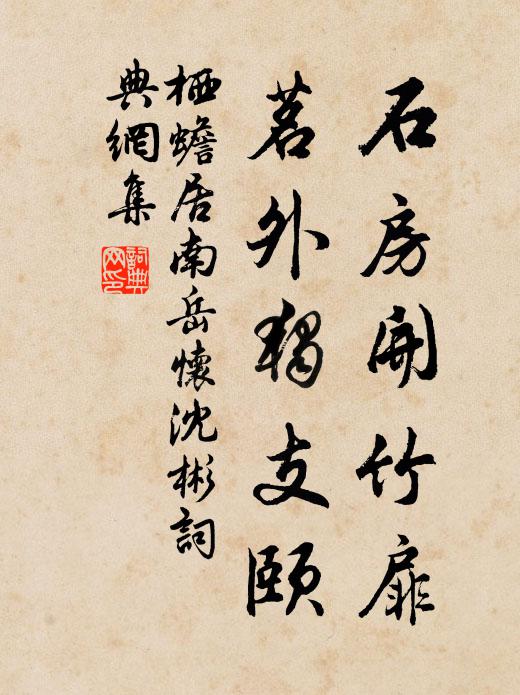 石房開竹扉
茗外獨支頤
栖蟾居南岳懷沈彬詞
典網集
詞典網印